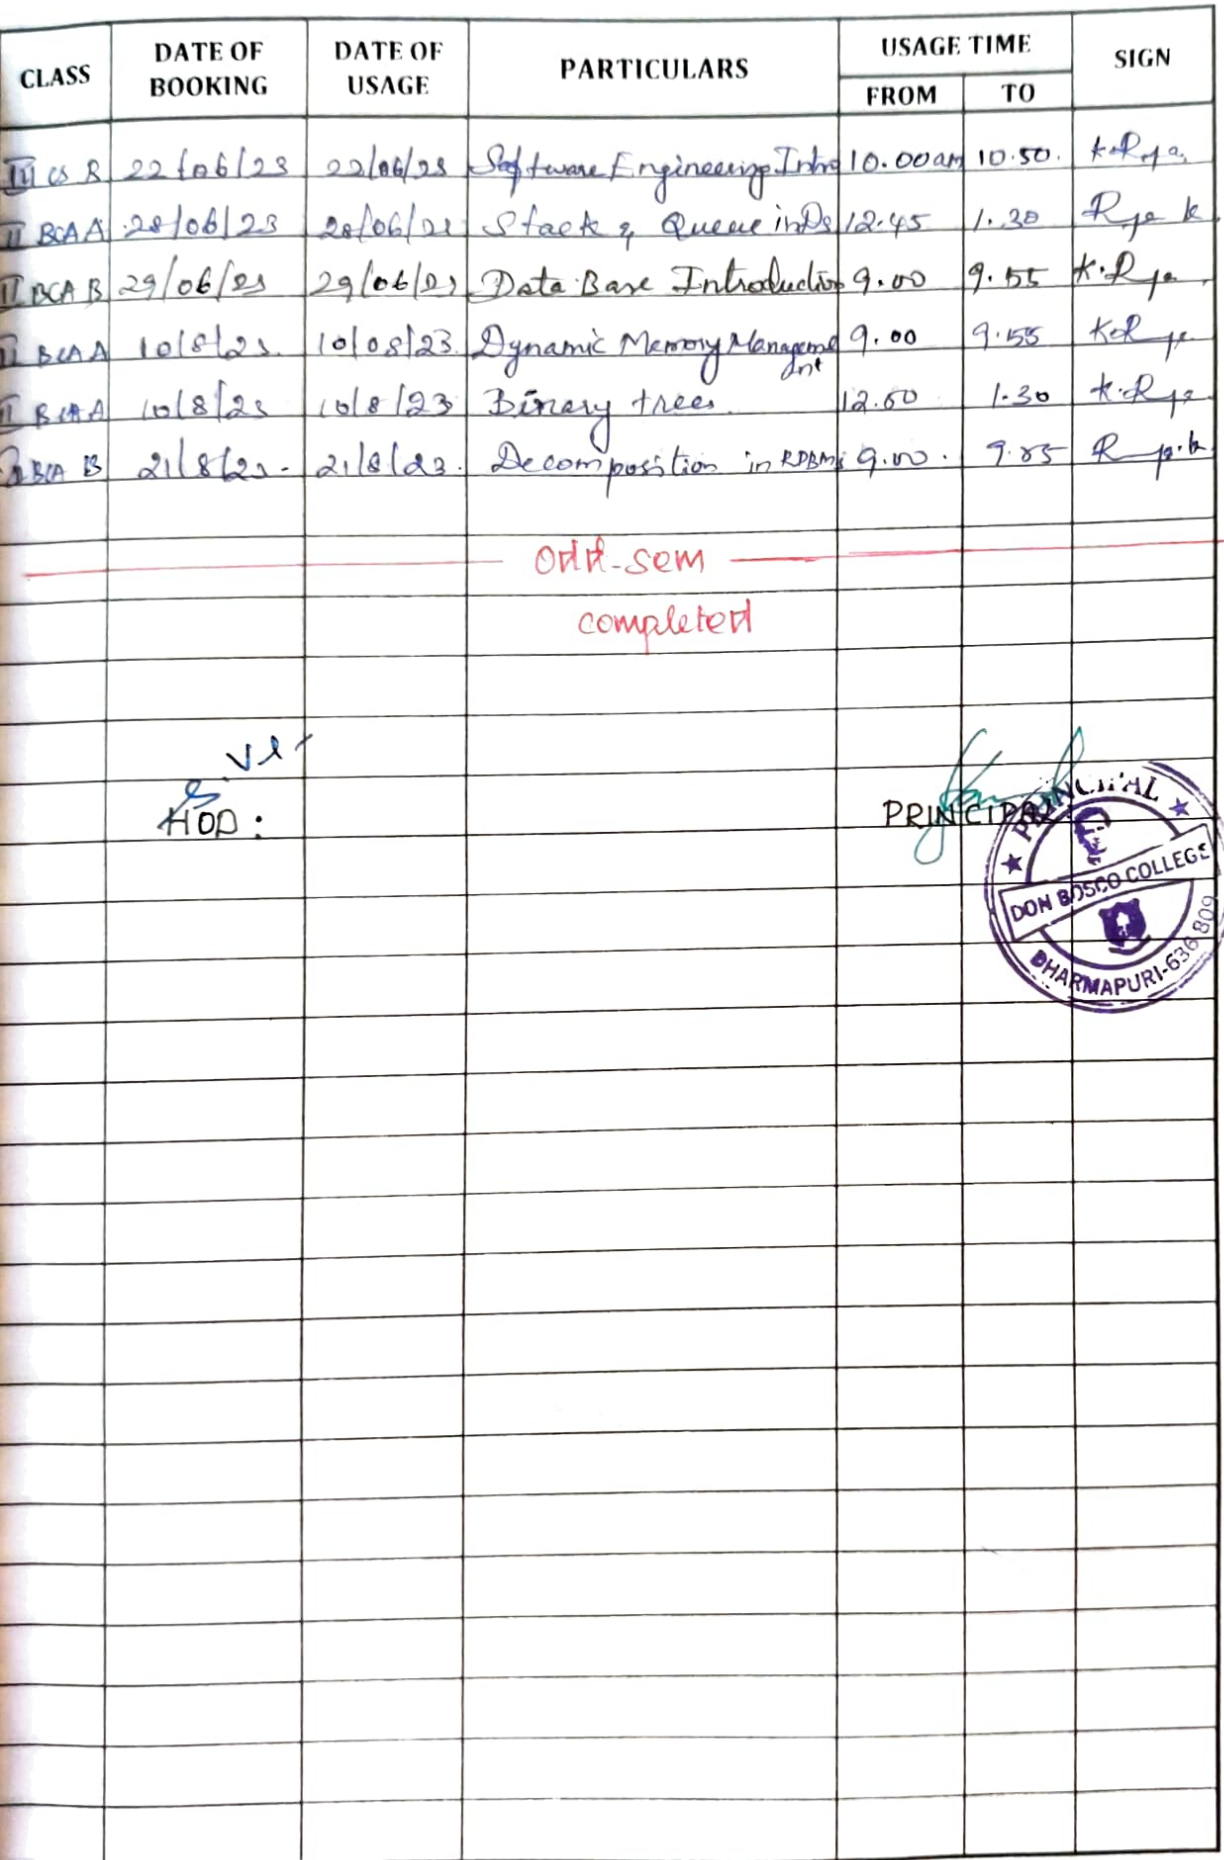 CLASS DATE OF BOOKING DATE OF USAGE PARTICULARS USAGE TIME FROM TO SIGN
III CS B 22/06/23 22/06/23 Software Engineering Intro 10.00am 10.50.
II BCA A 28/06/23 28/06/23 Stack & Queue in Ds 12.45 1.30
II BCA B 29/06/23 29/06/23 Data Base Introduction 9.00 9.55
II BCA A 10/8/23. 10/08/23. Dynamic Memory Management 9.00 9.55
II BCA A 10/8/23 10/8/23 Binary trees. 1.30
BCA B 21/8/23. 21/8/23. Decomposition in RDBMS 9.00.
Odd-sem
completed
HOD:
PRINCIPAL
PRINCIPAL
DON BOSCO COLLEGE
DHARMAPURI-636 809